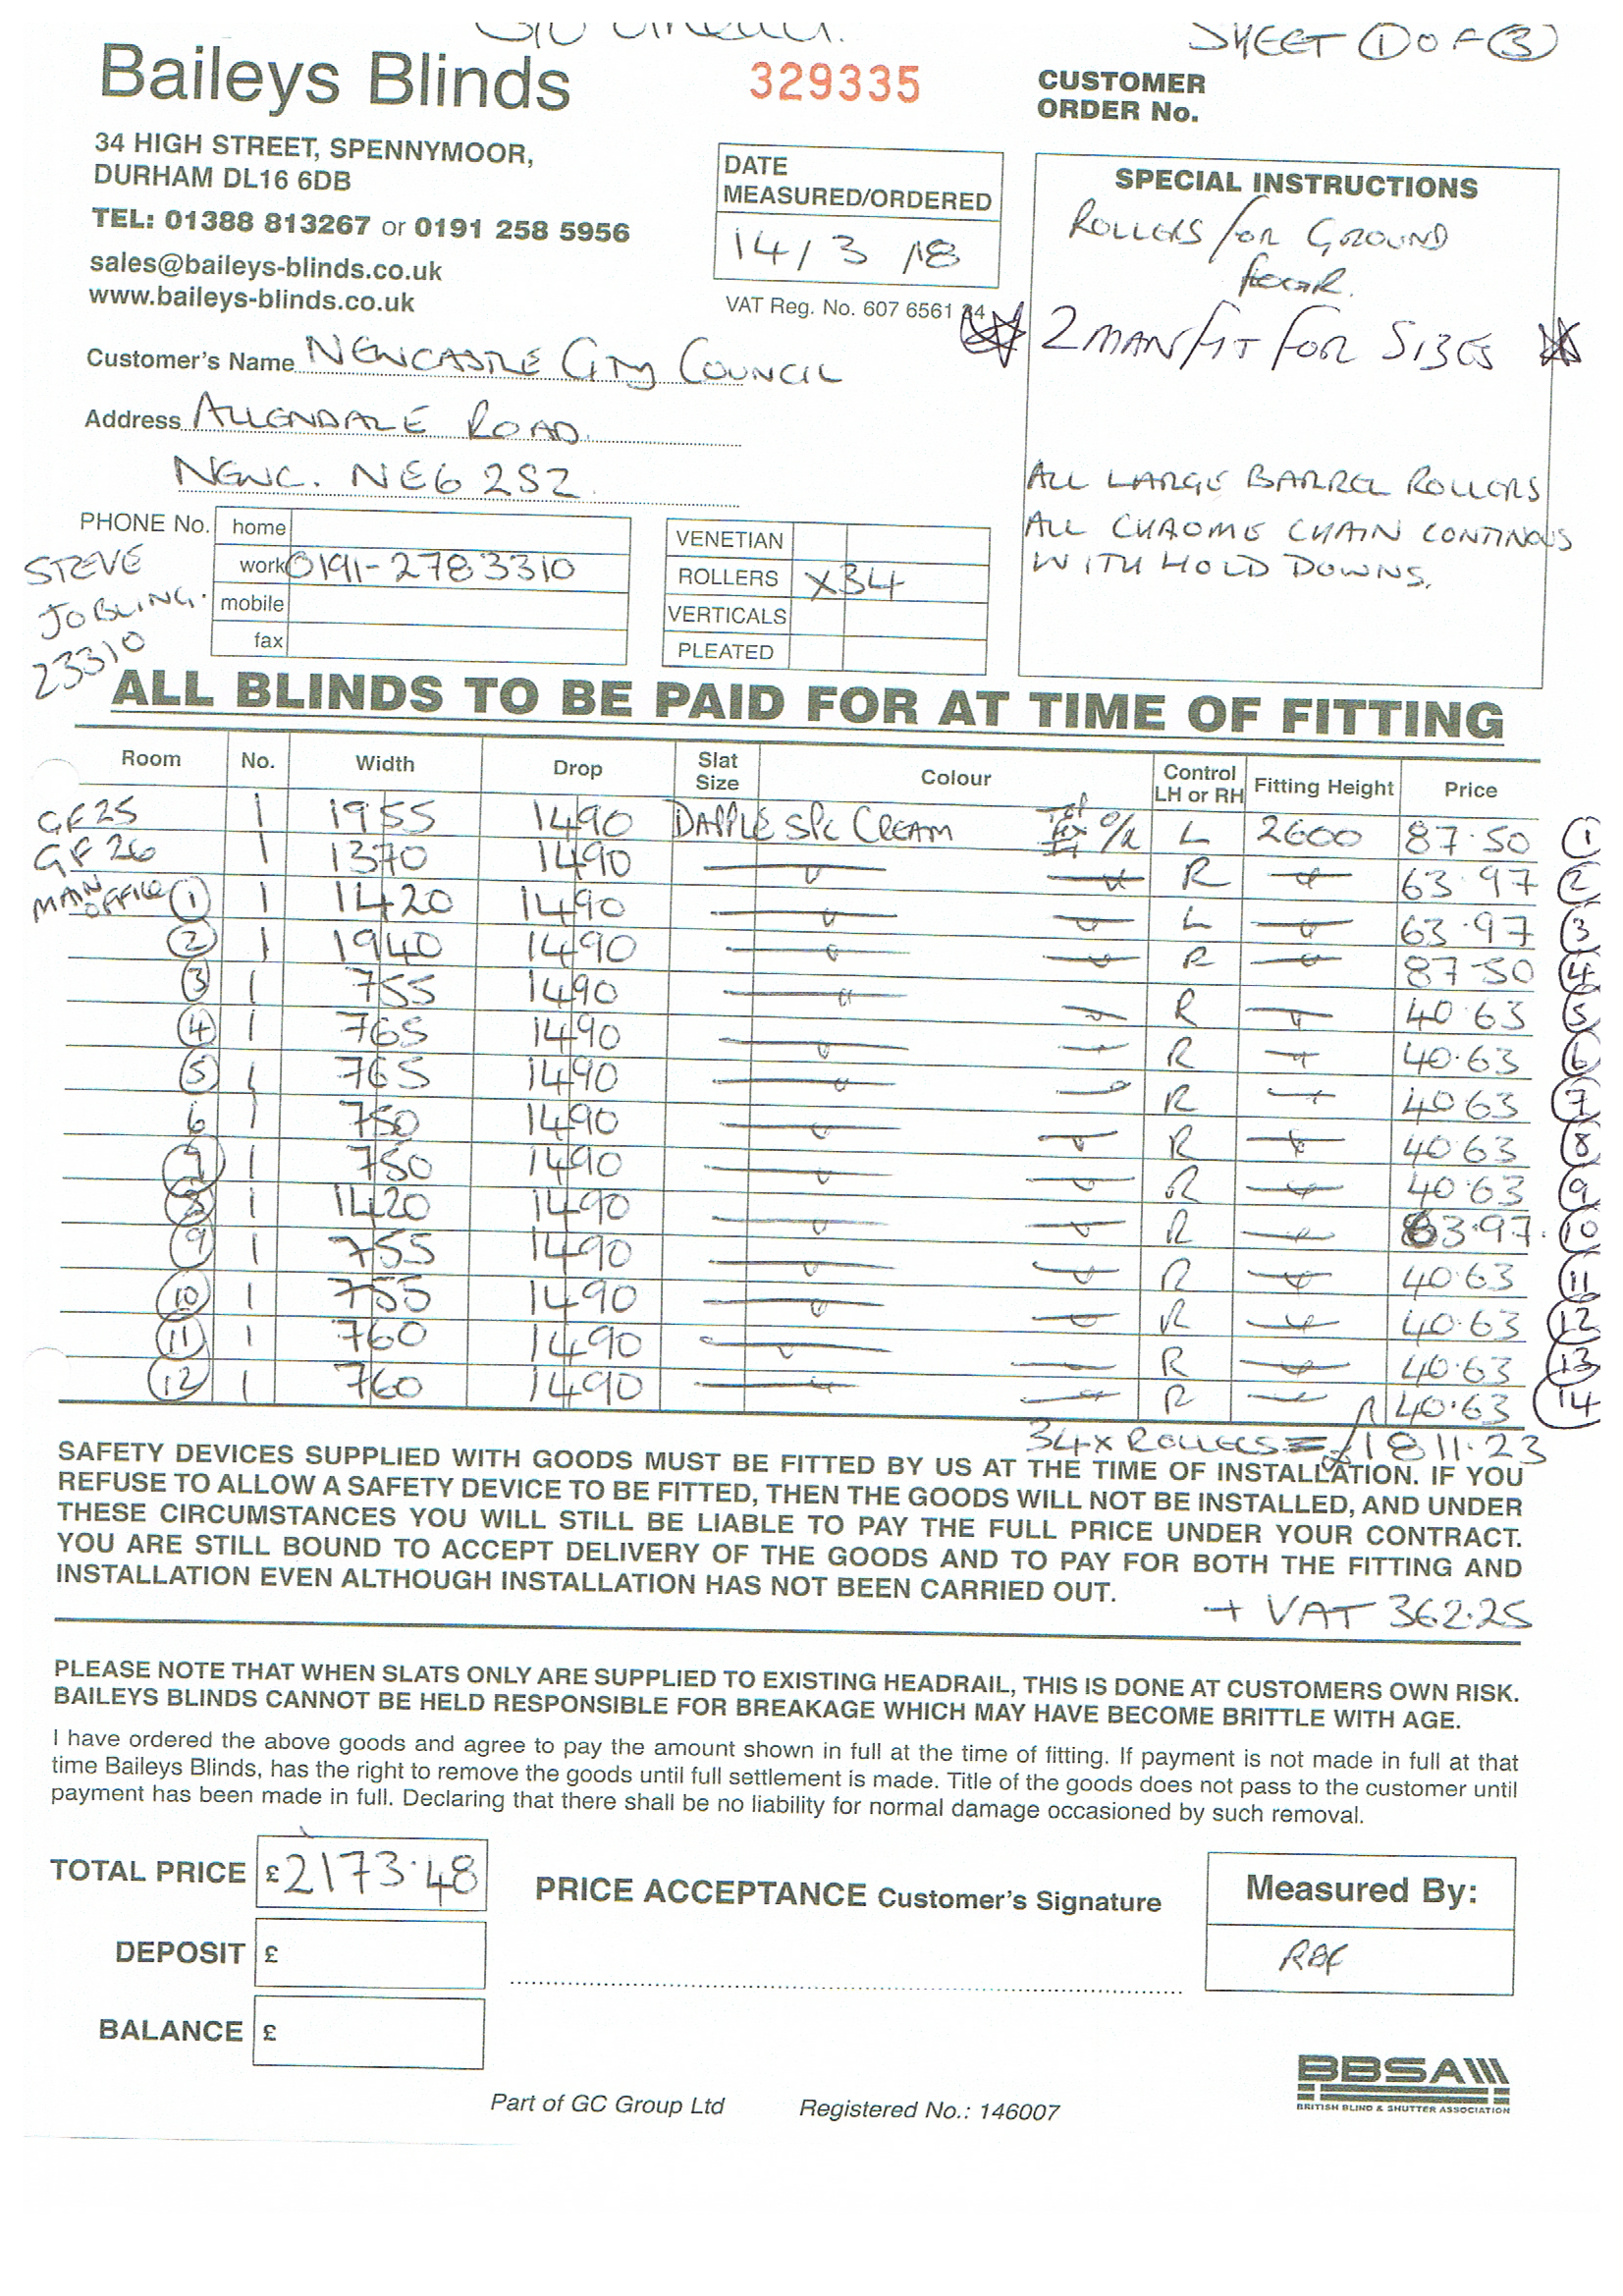 SHEET (1) OF (3)
Baileys Blinds
329335
CUSTOMER
ORDER No.
34 HIGH STREET, SPENNYMOOR,
DURHAM DL16 6DB
TEL: 01388 813267 or 0191 258 5956
sales@baileys-blinds.co.uk
www.baileys-blinds.co.uk
DATE
MEASURED/ORDERED
14/3/18
VAT Reg. No. 607 6561
SPECIAL INSTRUCTIONS
ROLLERS FOR GROUND
FLOOR.
2 MAN FIT FOR SIZES
ALL LARGE BARREL ROLLERS
ALL CHROME CHAIN CONTINOUS
WITH HOLD DOWNS.
Customer's Name NEWCASTLE CITY COUNCIL
Address ALLENDALE ROAD.
NEWC. NE6 2SZ.
PHONE No. home
work 0191-2783310
mobile
fax
STEVE
JOBLING.
23310
VENETIAN
ROLLERS X34
VERTICALS
PLEATED
ALL BLINDS TO BE PAID FOR AT TIME OF FITTING
Room No. Width Drop Slat Size Colour Control LH or RH Fitting Height Price
GF25 1 1955 1490 DAPPLE SPC CREAM O/R L 2600 87.50 (1)
GF26 1 1370 1490 R 63.97 (2)
MAIN OFFICE (1) 1 1420 1490 L 63.97 (3)
(2) 1 1940 1490 R 87-50 (4)
(3) 1 755 1490 R 40.63 (5)
(4) 1 765 1490 R 40.63 (6)
(5) 1 765 1490 R 40.63 (7)
6 1 750 1490 R 40.63 (8)
(7) 1 750 1490 R 40.63 (9)
(8) 1 1420 1490 R 63.97. (10)
(9) 1 755 1490 R 40.63 (11)
(10) 1 755 1490 R 40.63 (12)
(11) 1 760 1490 R 40.63 (13)
(12) 1 760 1490 R 40.63 (14)
34x ROLLERS = £1811.23
SAFETY DEVICES SUPPLIED WITH GOODS MUST BE FITTED BY US AT THE TIME OF INSTALLATION. IF YOU
REFUSE TO ALLOW A SAFETY DEVICE TO BE FITTED, THEN THE GOODS WILL NOT BE INSTALLED, AND UNDER
THESE CIRCUMSTANCES YOU WILL STILL BE LIABLE TO PAY THE FULL PRICE UNDER YOUR CONTRACT.
YOU ARE STILL BOUND TO ACCEPT DELIVERY OF THE GOODS AND TO PAY FOR BOTH THE FITTING AND
INSTALLATION EVEN ALTHOUGH INSTALLATION HAS NOT BEEN CARRIED OUT.
+ VAT 362.25
PLEASE NOTE THAT WHEN SLATS ONLY ARE SUPPLIED TO EXISTING HEADRAIL, THIS IS DONE AT CUSTOMERS OWN RISK.
BAILEYS BLINDS CANNOT BE HELD RESPONSIBLE FOR BREAKAGE WHICH MAY HAVE BECOME BRITTLE WITH AGE.
I have ordered the above goods and agree to pay the amount shown in full at the time of fitting. If payment is not made in full at that
time Baileys Blinds, has the right to remove the goods until full settlement is made. Title of the goods does not pass to the customer until
payment has been made in full. Declaring that there shall be no liability for normal damage occasioned by such removal.
TOTAL PRICE £2173.48
DEPOSIT £
BALANCE £
PRICE ACCEPTANCE Customer's Signature
Measured By:
Part of GC Group Ltd
Registered No.: 146007
BBSA
BRITISH BLIND & SHUTTER ASSOCIATION